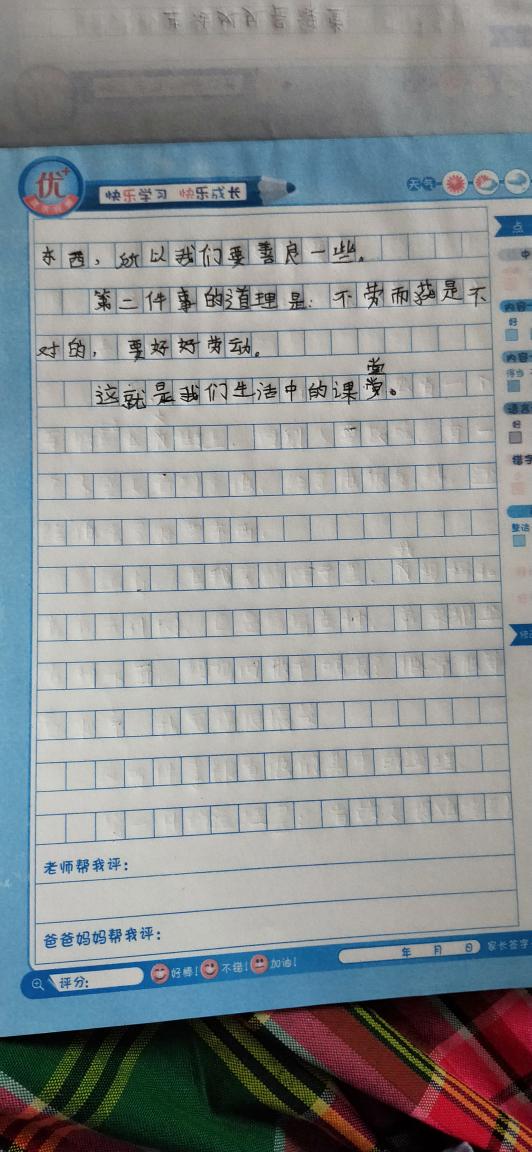 优+
快乐学习 快乐成长
天气
点
东西，所以我们要善良一些。
第二件事的道理是：不劳而获是不
对的，要好好劳动。
堂
这就是我们生活中的课堂。
内容
好
内容
得当
语言
好
错字
整洁
老师帮我评：
爸爸妈妈帮我评：
年 月 日 家长签字
评分： 好棒！ 不错！ 加油！